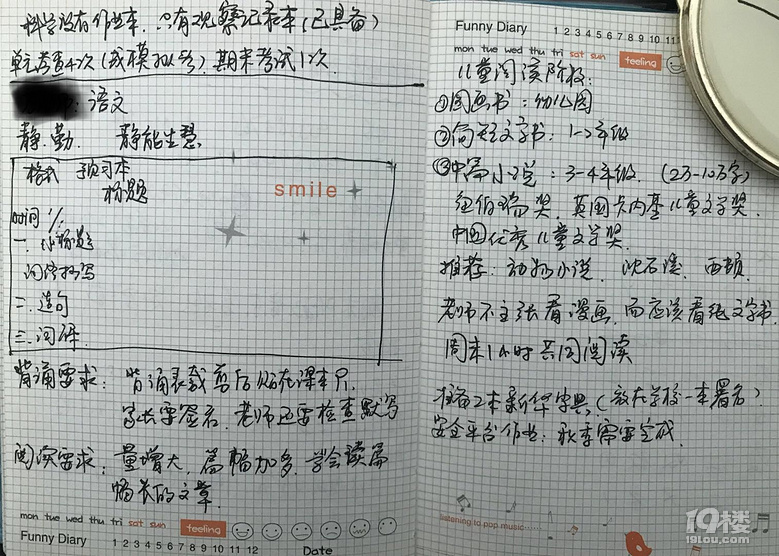 科学没有作业本，只有观察记录本（已具备）
单元考查4次（或模拟考），期末考试1次
：语文
静.勤. 静能生慧
格式 预习本
标题
smile
时间 1/.
一.小标题
词语抄写
二.造句
三.词解.
背诵要求：背诵表裁剪后贴在课本尸，
家长要签名，老师还要检查默写
阅读要求：量增大，篇幅加多，学会读篇
幅长的文章.
mon tue wed thu fri sat sun feeling
Funny Diary 1 2 3 4 5 6 7 8 9 10 11 12 Date
Funny Diary 1 2 3 4 5 6 7 8 9 10 11 12
mon tue wed thu fri sat sun feeling
儿童阅读阶段：
①图画书：幼儿园
②简短文字书：1-2年级
③中篇小说：3-4年级.（2万-10万字）
纽伯瑞奖，英国卡内基儿童文学奖.
中国优秀儿童文学奖.
推荐：动物小说，沈石溪，西顿.
老师不主张看漫画，而应该看纯文字书.
周末1小时共同阅读
准备2本新华字典，（放在学校一本署名）
安全平台作业：秋季需要完成.
listening to pop music
19楼
19lou.com